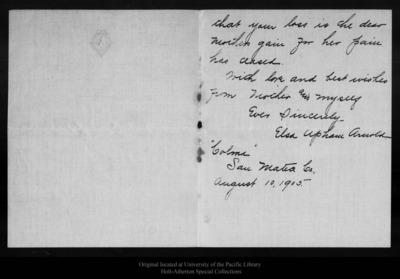 that your loss is the dear
Mother's gain for her pain
has ceased.
With love and best wishes
from Mother and myself
Ever Sincerely -
Elsa Upham Arnold
"Colma"
San Mateo Co.
August 10, 1905.
Original located at University of the Pacific Library
Holt-Atherton Special Collections